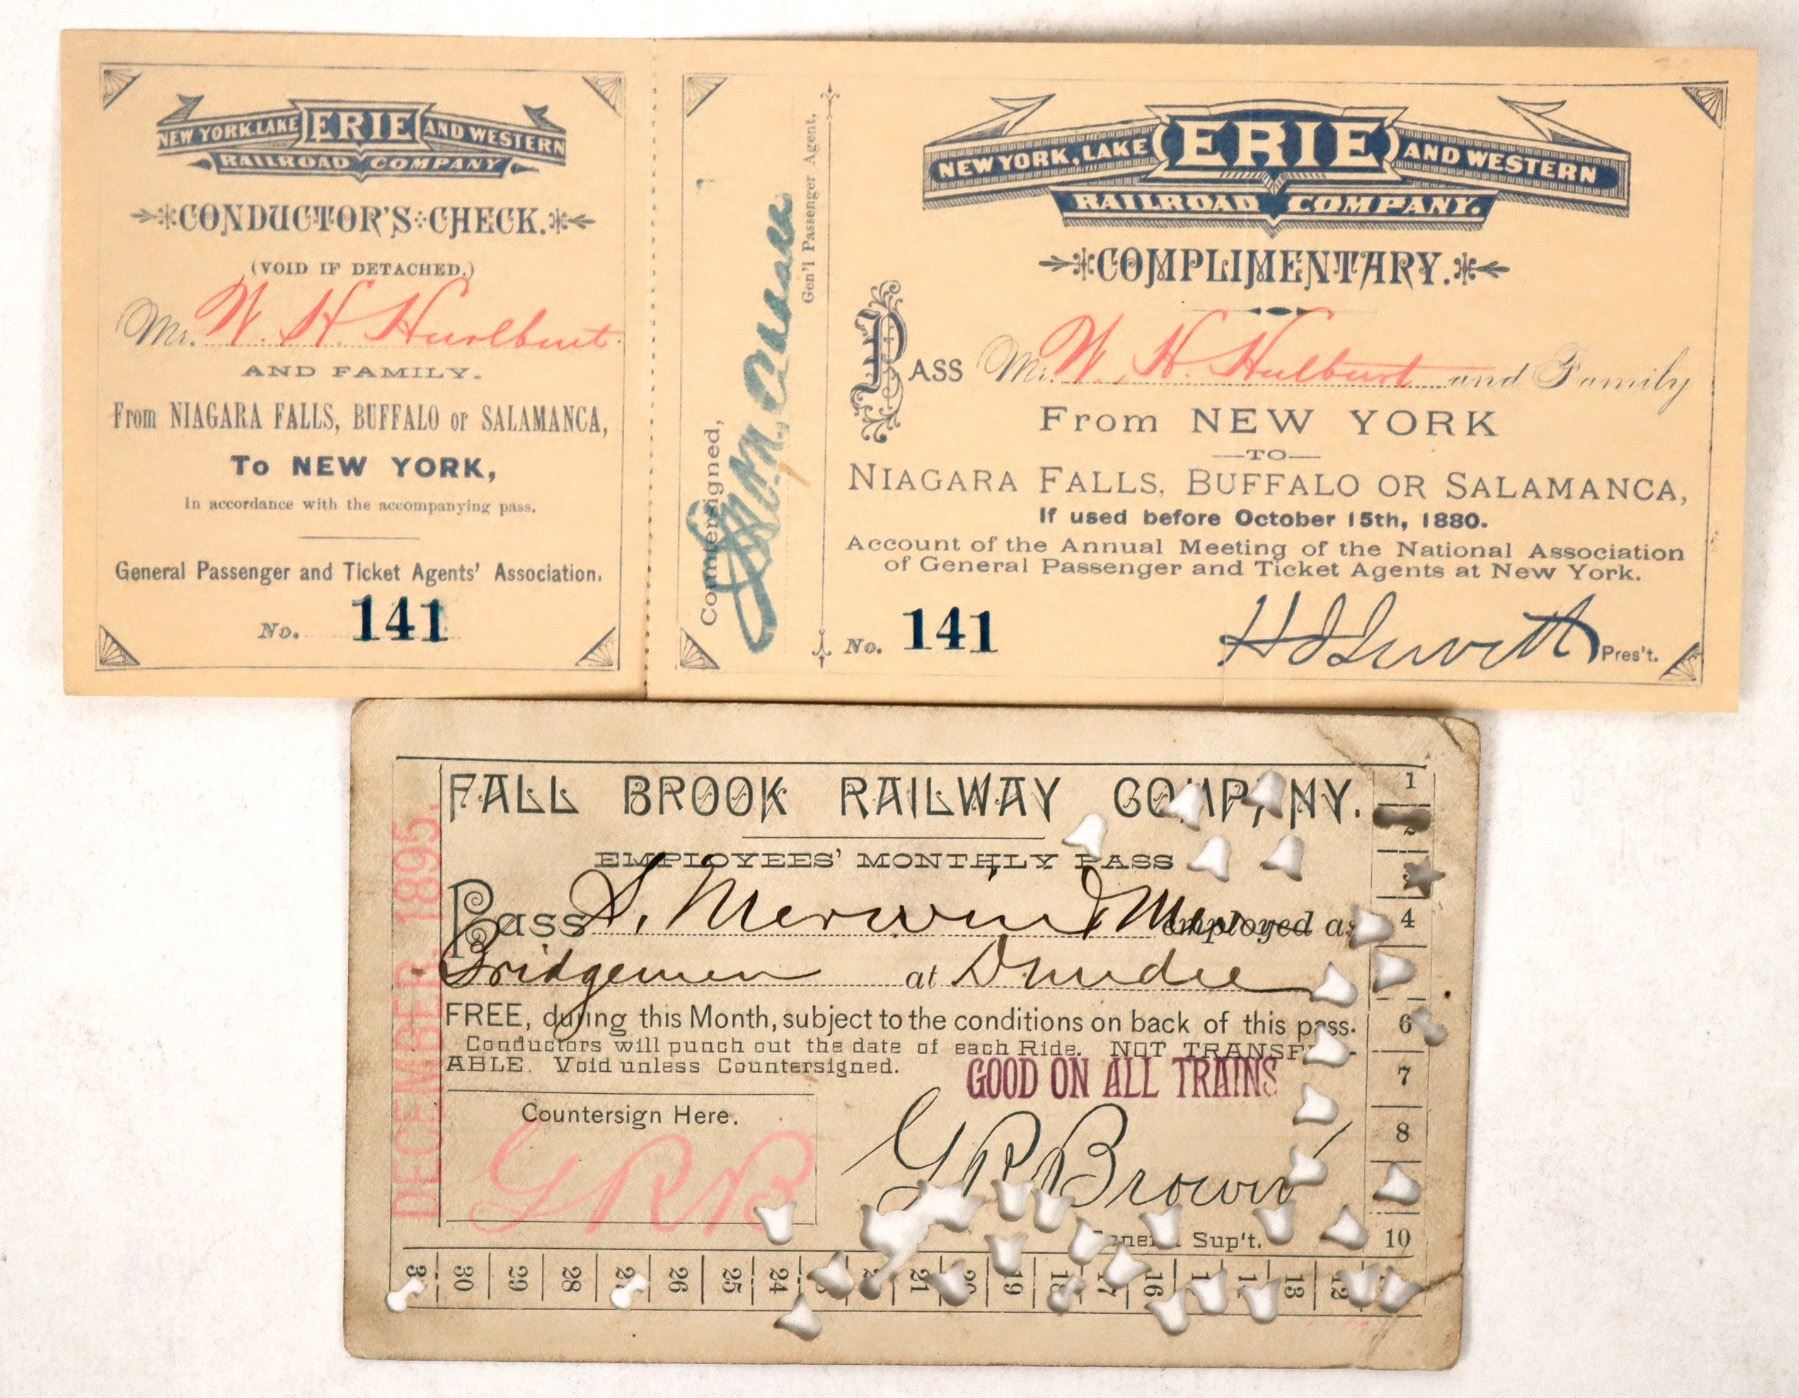 NEW YORK, LAKE ERIE AND WESTERN
RAILROAD COMPANY
CONDUCTOR'S CHECK.
(VOID IF DETACHED.)
Mr. W. H. Hurlburt
AND FAMILY.
From NIAGARA FALLS, BUFFALO or SALAMANCA,
To NEW YORK,
In accordance with the accompanying pass.
General Passenger and Ticket Agents' Association.
No. 141
Countersigned,
Gen'l Passenger Agent.
NEW YORK, LAKE ERIE AND WESTERN
RAILROAD COMPANY.
COMPLIMENTARY.
PASS Mr. W. H. Hulburt and Family
From NEW YORK
TO
NIAGARA FALLS, BUFFALO OR SALAMANCA,
If used before October 15th, 1880.
Account of the Annual Meeting of the National Association
of General Passenger and Ticket Agents at New York.
No. 141
Pres't.
FALL BROOK RAILWAY COMPANY.
EMPLOYEES' MONTHLY PASS
Pass S. Merwin employed as
Bridgeman at Dundee
FREE, during this Month, subject to the conditions on back of this pass.
Conductors will punch out the date of each Ride. NOT TRANSFER-
ABLE. Void unless Countersigned.
GOOD ON ALL TRAINS
Countersign Here.
GRB
G R Brown
General Sup't.
DECEMBER, 1895.
1
2
3
4
6
7
8
10
31 30 29 28 27 26 25 24 21 20 19 18 17 16 13 12